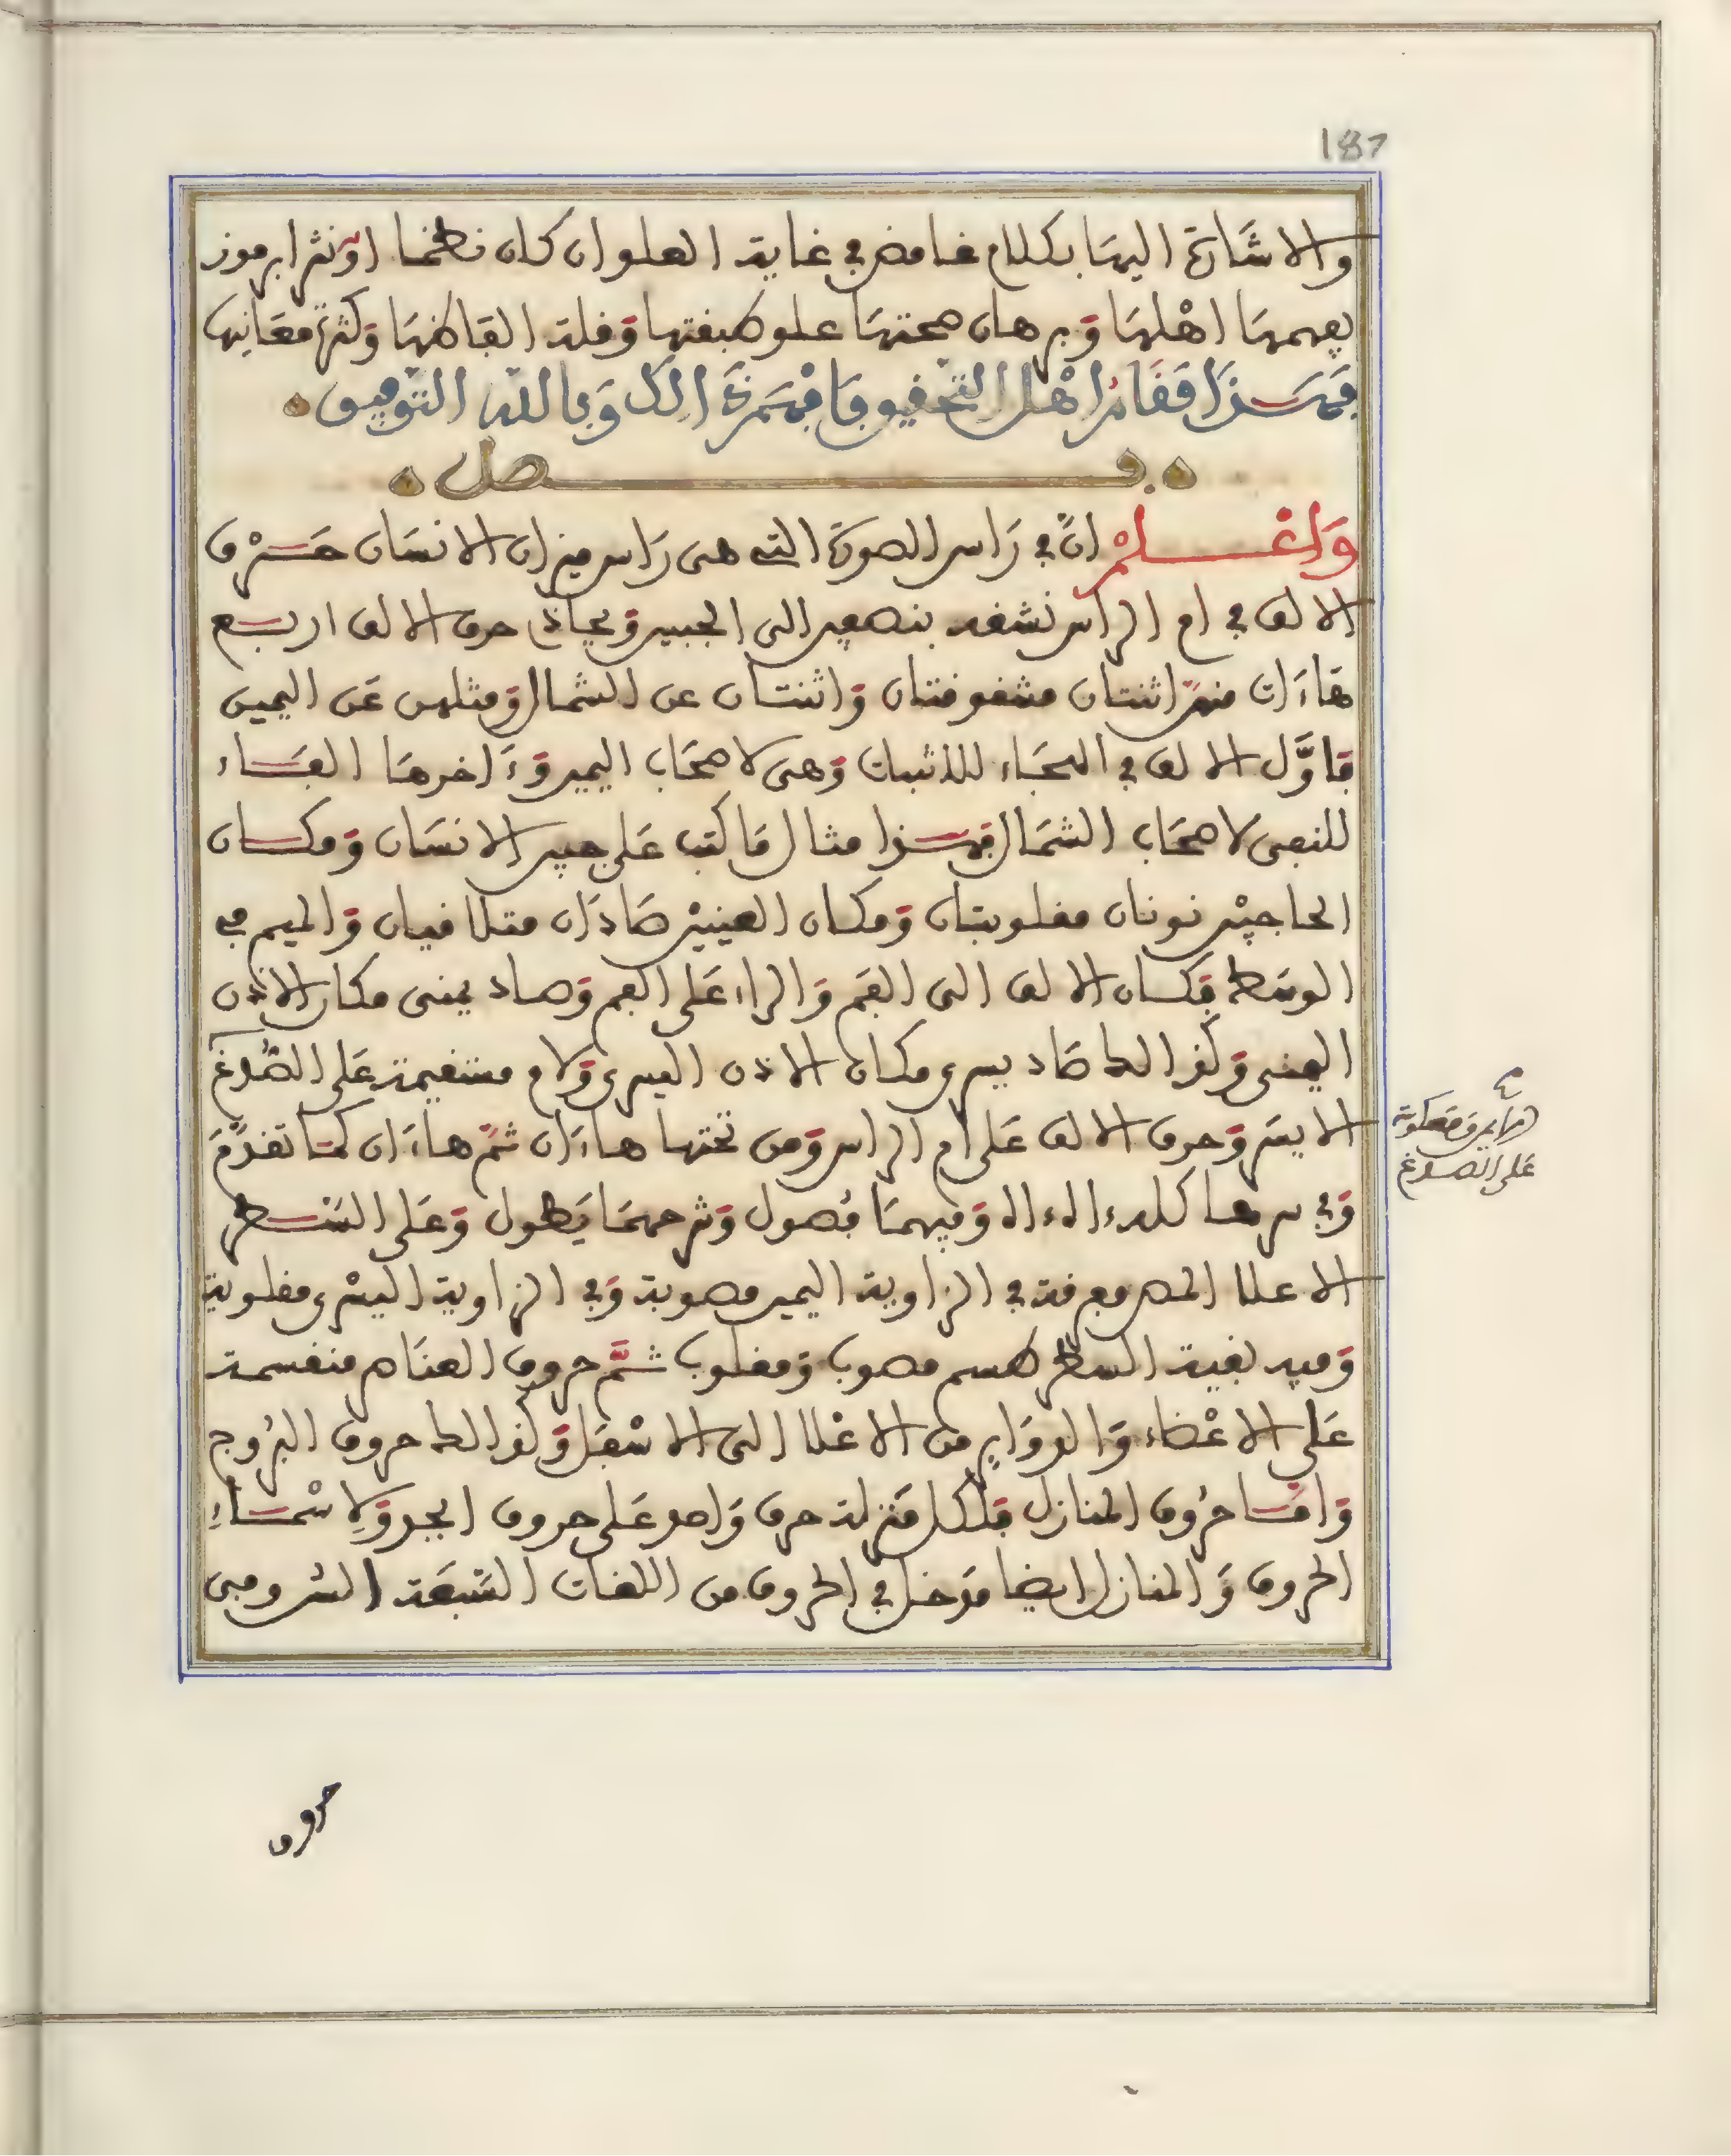 187
والاشارة اليها بكلام غامض في غاية العلو ان كان نظما او نثرا برموز
يفهمها اهلها وبرهان صحتها علو طبقتها وقلة الفاظها وكثرة معانيها
فهذا مقام اهل التحقيق فافهم ذالك وبالله التوفيق
فصل
واعلم ان في راس الصورة التي هي راس ميزان الانسان حرف
الالف في ام الراس نشقه بنصفين الى الجبين ويحاذي حرف الالف اربع
هاءات منهن اثنتان مشقوقتان واثنتان عن الشمال ومثلهن عن اليمين
فاول الالف في الهجاء للاثبات وهي لاصحاب اليمين وءاخرها الفاء
للنفي لاصحاب الشمال فهذا مثال ما كتب على جبين الانسان ومكان
الحاجبين نونان مقلوبتان ومكان العينين صادان متلاقيان والميم في
الوسط فكان الالف الى الفم والراء على الفم وصاد يمنى مكان الاذن
اليمنى وكذالك صاد يسرى مكان الاذن اليسرى ولام مستقيمة على الصدغ
الايسر وحرف الالف على ام الراس ومن تحتها هاءان ثم هاءان كما تقدم
وفي سرها كله ءاله ءاله وفيهما فصول وشرحهما يطول وعلى السطر
الاعلا الحمد معرفة في الزاوية اليمين مصوبة وفي الزاوية اليسرى مقلوبة
وفيه بقية السطر طسم مصوب ومقلوب ثم حروف العناصر منقسمة
على الاعضاء والدواير من الاعلا الى الاسفل وكذالك حروف البروج
واما حروف المنازل فلكل منزلة حرف واحد على حروف ابجد ولاسماء
الحروف والمنازل ايضا مدخل في الحروف من اللغات السبعة الستر وهي
الايمن ومعكوسة
على الصدغ
حروف